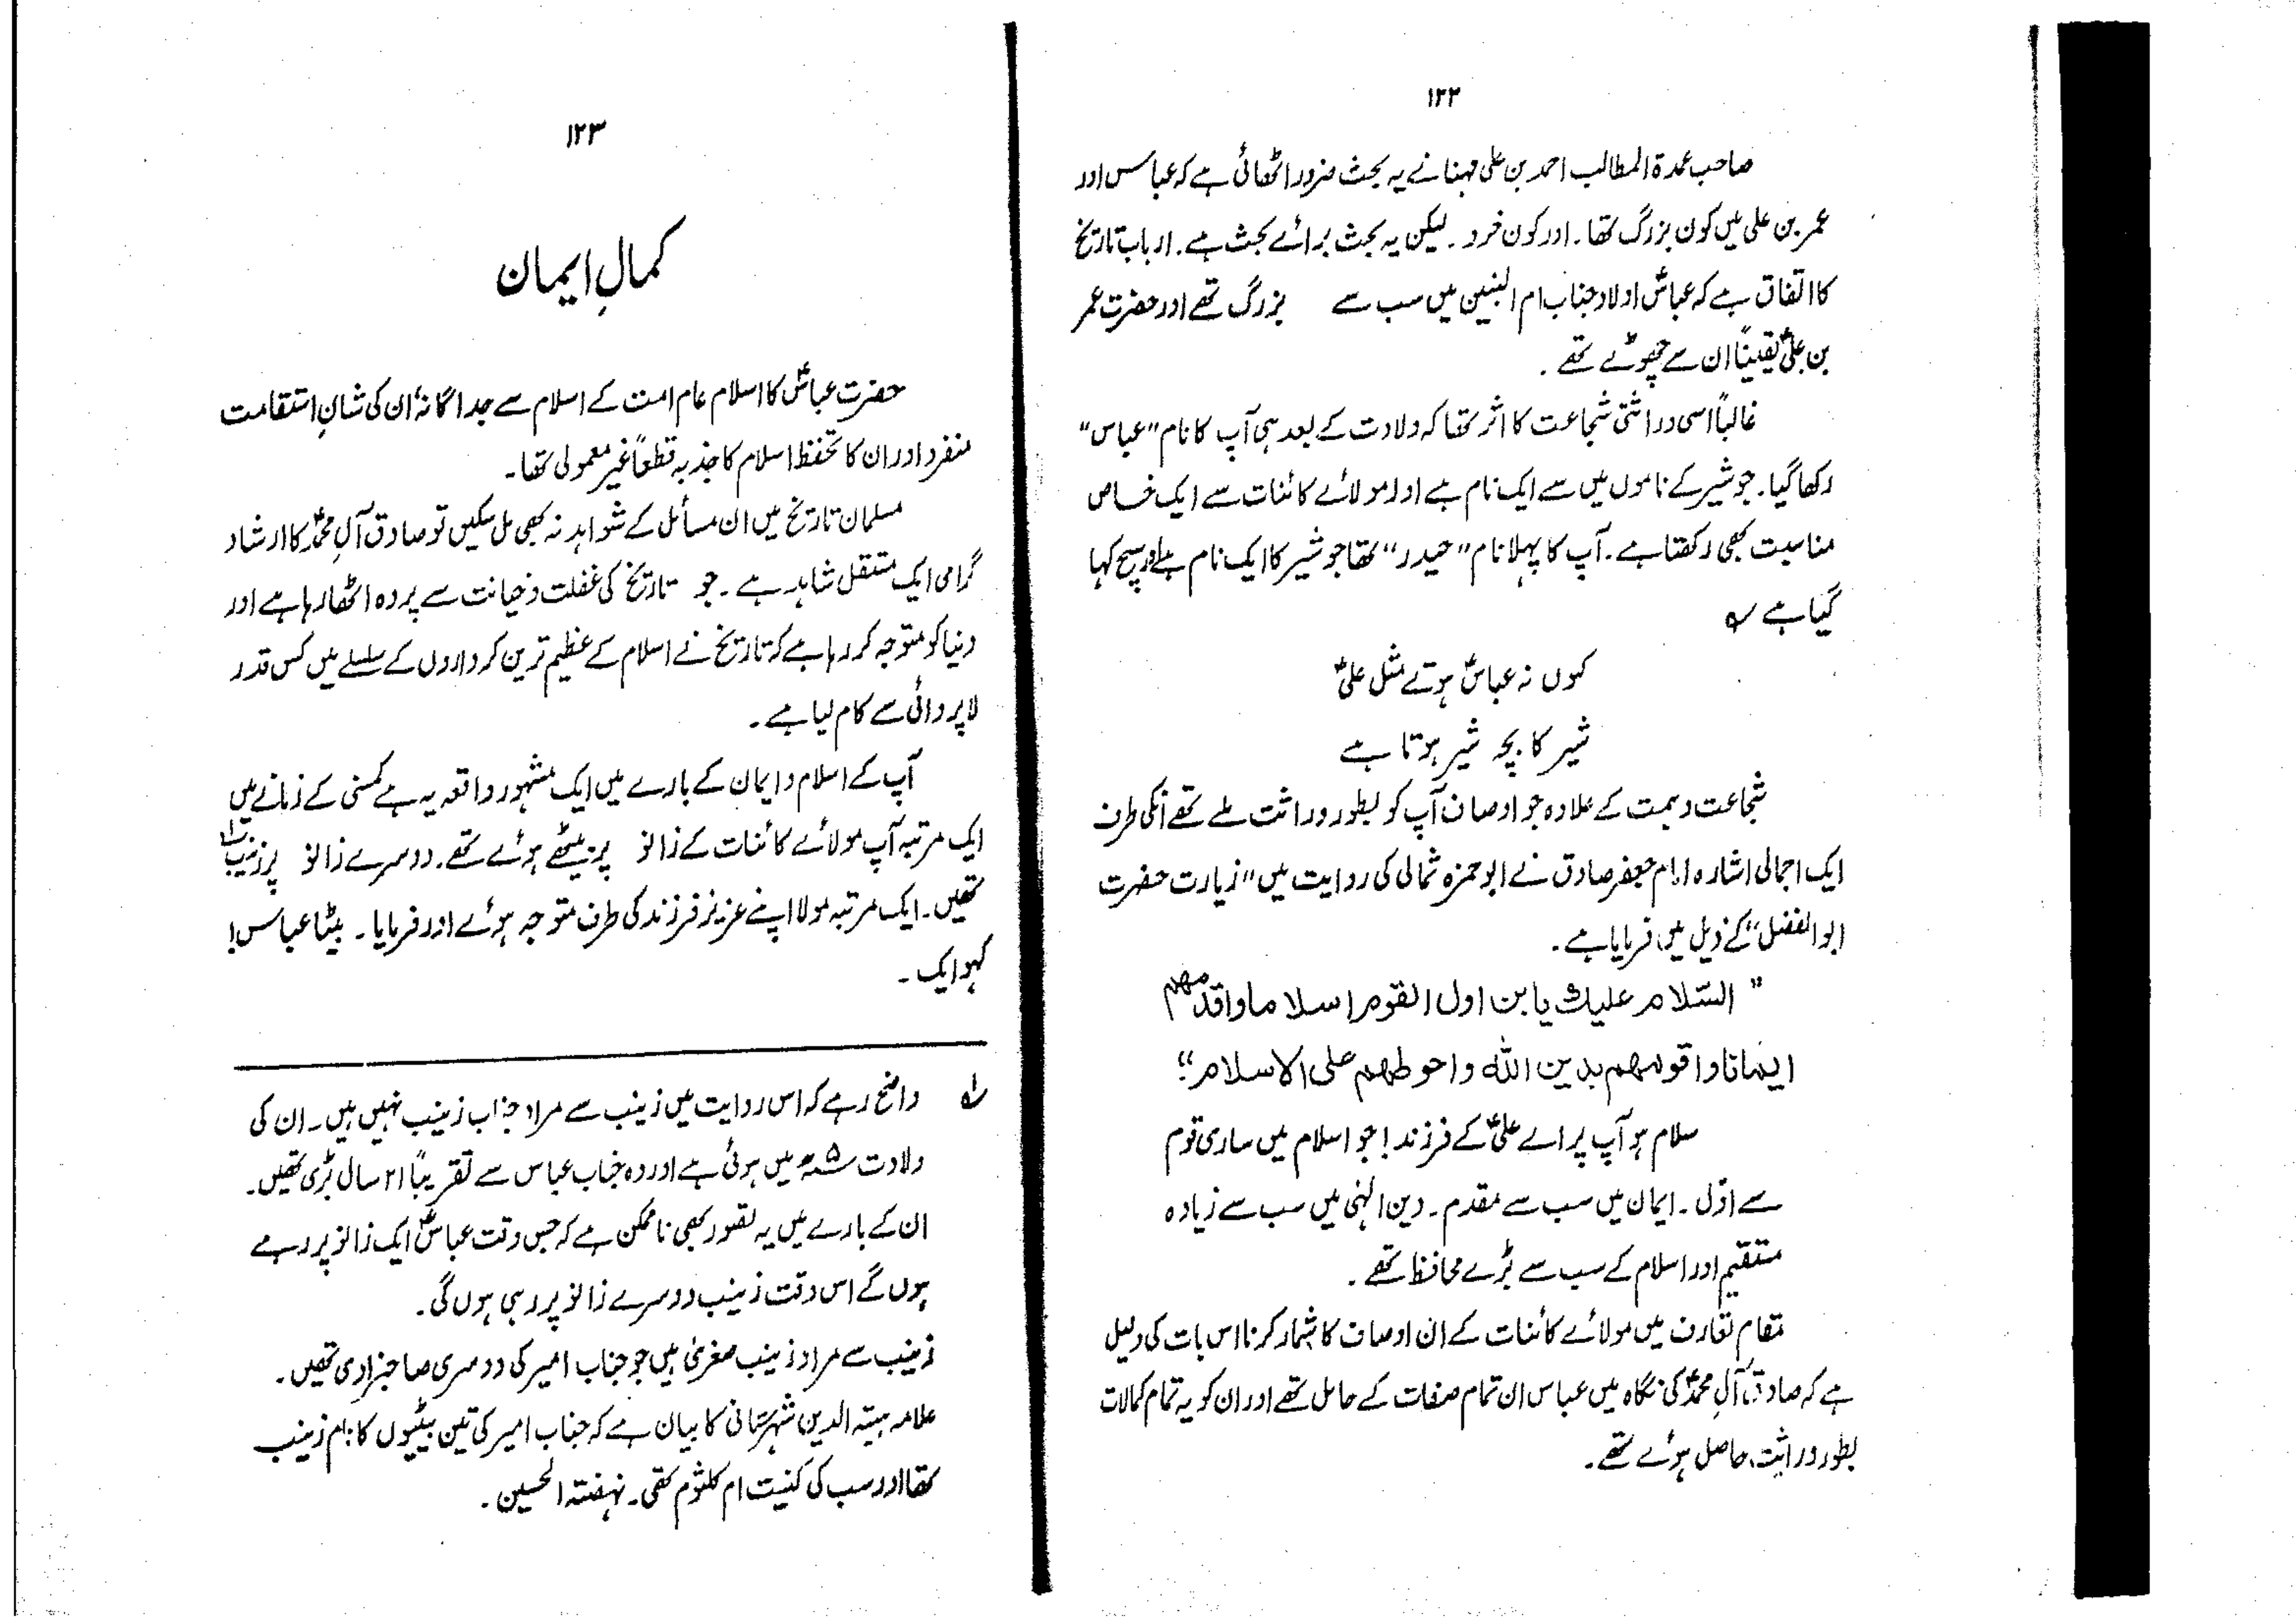 ۱۲۲
صاحب عمدۃ المطالب احمد بن علی مہنا نے یہ بحث ضرور اٹھائی ہے کہ عباس اور
عمر بن علی میں کون بزرگ تھا۔ اور کون خرد۔ لیکن یہ بحث برائے بحث ہے۔ ارباب تاریخ
کا اتفاق ہے کہ عباسؑ اولاد جناب ام البنین میں سب سے بزرگ تھے اور حضرت عمر
بن علیؑ یقیناً ان سے چھوٹے تھے۔
غالباً اسی وراثتی شجاعت کا اثر تھا کہ ولادت کے بعد ہی آپ کا نام "عباس"
رکھا گیا۔ جو شیر کے ناموں میں سے ایک نام ہے اور مولائے کائنات سے ایک خاص
مناسبت بھی رکھتا ہے۔ آپ کا پہلا نام "حیدر" تھا جو شیر کا ایک نام ہے اور سچ کہا
گیا ہے ؎
کیوں نہ عباسؑ ہوتے مثل علیؑ
شیر کا بچہ شیر ہوتا ہے
شجاعت و ہمت کے علاوہ جو اوصاف آپ کو بطور وراثت ملے تھے انکی طرف
ایک اجمالی اشارہ امام جعفر صادق نے ابو حمزہ ثمالی کی روایت میں "زیارت حضرت
ابو الفضل" کے ذیل میں فرمایا ہے۔
"السّلام علیك یا بن اول القوم اسلاما واقدمهم
ایمانا واقومهم بدین الله واحوطهم علی الاسلام"
سلام ہو آپ پر اے علیؑ کے فرزند! جو اسلام میں ساری قوم
سے اوّل۔ ایمان میں سب سے مقدم۔ دین الٰہی میں سب سے زیادہ
مستقیم اور اسلام کے سب سے بڑے محافظ تھے۔
مقام تعارف میں مولائے کائنات کے ان اوصاف کا شمار کرنا اس بات کی دلیل
ہے کہ صادق آلِ محمدؐ کی نگاہ میں عباس ان تمام صفات کے حامل تھے اور ان کو یہ تمام کمالات
بطور وراثت حاصل ہوئے تھے۔
۱۲۳
کمالِ ایمان
حضرت عباسؑ کا اسلام عام امت کے اسلام سے جداگانہ ان کی شانِ استقامت
منفرد اور ان کا تحفظ اسلام کا جذبہ قطعاً غیر معمولی تھا۔
مسلمان تاریخ میں ان مسائل کے شواہد نہ بھی مل سکیں تو صادق آلِ محمدؐ کا ارشاد
گرامی ایک مستقل شاہد ہے۔ جو تاریخ کی غفلت و خیانت سے پردہ اٹھا رہا ہے اور
دنیا کو متوجہ کر رہا ہے کہ تاریخ نے اسلام کے عظیم ترین کرداروں کے سلسلے میں کس قدر
لاپروائی سے کام لیا ہے۔
آپ کے اسلام و ایمان کے بارے میں ایک مشہور واقعہ یہ ہے کمسنی کے زمانے میں
ایک مرتبہ آپ مولائے کائنات کے زانو پر بیٹھے ہوئے تھے۔ دوسرے زانو پر زینب؂۱
تھیں۔ ایک مرتبہ مولا اپنے عزیز فرزند کی طرف متوجہ ہوئے اور فرمایا۔ بیٹا عباس!
کہو ایک۔
؂۱ واضح رہے کہ اس روایت میں زینب سے مراد جناب زینب نہیں ہیں۔ ان کی
ولادت ۵ھ میں ہوئی ہے اور وہ جناب عباس سے تقریباً ۲۱ سال بڑی تھیں۔
ان کے بارے میں یہ تصور بھی ناممکن ہے کہ جس وقت عباسؑ ایک زانو پر رہے
ہوں گے اس وقت زینب دوسرے زانو پر رہی ہوں گی۔
زینب سے مراد زینب صغریٰ ہیں جو جناب امیر کی دوسری صاحبزادی تھیں۔
علامہ ہبتہ الدین شہرستانی کا بیان ہے کہ جناب امیر کی تین بیٹیوں کا نام زینب
تھا اور سب کی کنیت ام کلثوم تھی۔ نہضتہ الحسین۔